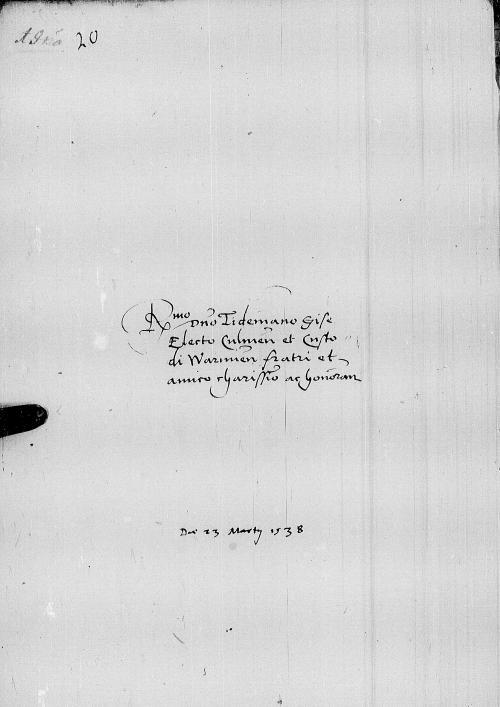 20
Rmo Dno Tidemano Gise
Electo Culmen et Custo
di Warmien fratri et
amico charissimo ac honoran
23 Martij 1538